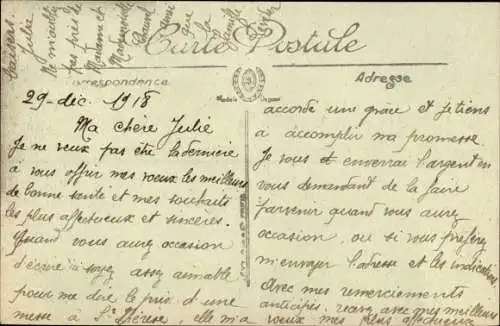 Carte Postale
Correspondance
Adresse
29-déc. 1918
Ma chère Julie
Je ne veux pas être la dernière
à vous offrir mes voeux les meilleurs
de bonne santé et mes souhaits
les plus affectueux et sincères.
Quand vous aurez occasion
d'écrire si soyez assez aimable
pour me dire le prix d'une
messe à Ste Thérèse, elle m'a
accordé une grâce et je tiens
à accomplir ma promesse.
Je vous enverrai l'argent en
vous demandant de la faire
parvenir quand vous aurez
occasion, ou si vous préférez
m'envoyer l'adresse et les indications
Avec mes remerciements
anticipés, recevez avec mes meilleurs
voeux mes plus affectueux
baisers.
Julie
N'oubliez
pas près de
Madame et
Mademoiselle
ainsi
que
la
famille